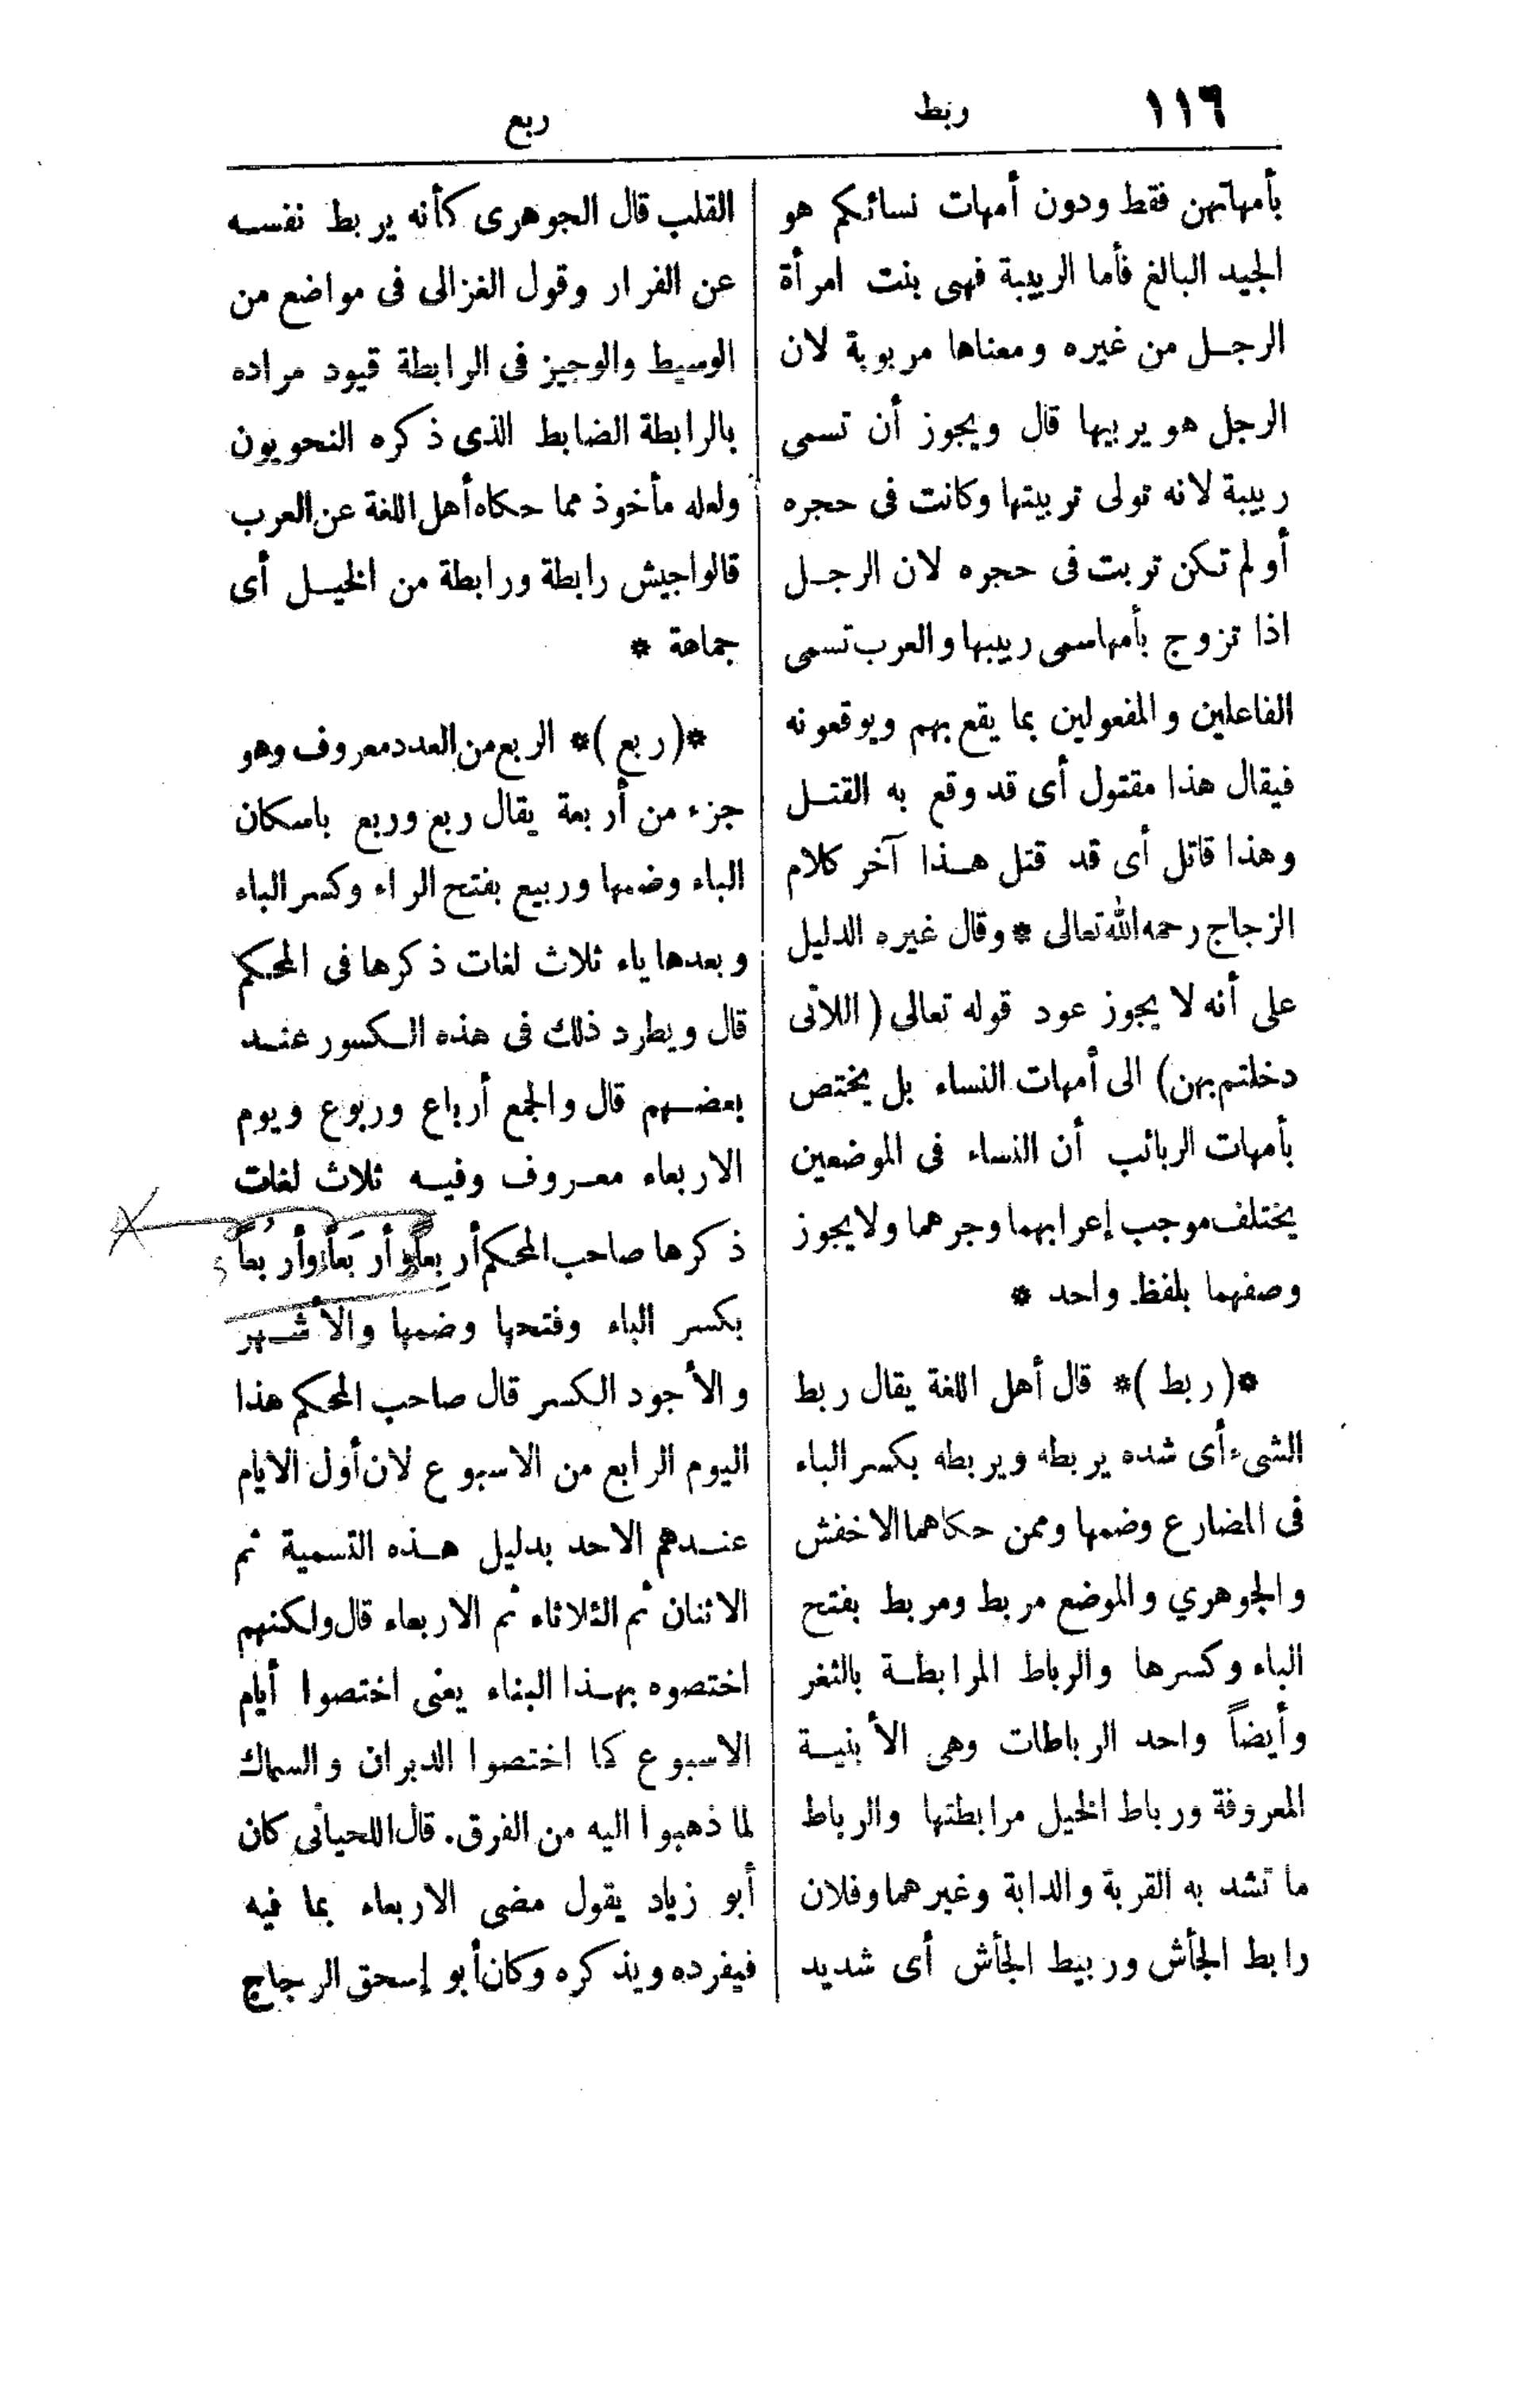 ١١٦
ربط
ربع
بأمهاتهن فقط ودون أمهات نسائكم هو
الجيد البالغ فأما الربيبة فهى بنت امرأة
الرجل من غيره ومعناها مربوبة لان
الرجل هو يربيها قال ويجوز أن تسمى
ربيبة لانه تولى تربيتها وكانت فى حجره
أو لم تكن تربت فى حجره لان الرجل
اذا تزوج بأمها سمى ربيبها والعرب تسمى
الفاعلين والمفعولين بما يقع بهم ويوقعونه
فيقال هذا مقتول أى قد وقع به القتل
وهذا قاتل أى قد قتل هذا آخر كلام
الزجاج رحمه الله تعالى * وقال غيره الدليل
على أنه لا يجوز عود قوله تعالى (اللاتى
دخلتم بهن) الى أمهات النساء بل يختص
بأمهات الربائب أن النساء فى الموضعين
يختلف موجب إعرابهما وجرهما ولا يجوز
وصفهما بلفظ واحد *
*(ربط)* قال أهل اللغة يقال ربط
الشىء أى شده يربطه ويربطه بكسر الباء
فى المضارع وضمها وممن حكاهما الاخفش
والجوهري والموضع مربط ومربط بفتح
الباء وكسرها والرباط المرابطة بالثغر
وأيضاً واحد الرباطات وهى الأبنية
المعروفة ورباط الخيل مرابطتها والرباط
ما تشد به القربة والدابة وغيرهما وفلان
رابط الجأش وربيط الجأش أى شديد
القلب قال الجوهرى كأنه يربط نفسه
عن الفرار وقول الغزالى فى مواضع من
الوسيط والوجيز فى الرابطة قيود مراده
بالرابطة الضابط الذى ذكره النحويون
ولعله مأخوذ مما حكاه أهل اللغة عن العرب
قالوا جيش رابطة ورابطة من الخيل أى
جماعة *
*(ربع)* الربع من العدد معروف وهو
جزء من أربعة يقال ربع وربع باسكان
الباء وضمها وربيع بفتح الراء وكسر الباء
وبعدها ياء ثلاث لغات ذكرها فى المحكم
قال ويطرد ذلك فى هذه الكسور عند
بعضهم قال والجمع أرباع وربوع ويوم
الاربعاء معروف وفيه ثلاث لغات
ذكرها صاحب المحكم أربِعاً وأربَعاً وأربُعاً
بكسر الباء وفتحها وضمها والأشهر
والأجود الكسر قال صاحب المحكم هذا
اليوم الرابع من الاسبوع لان أول الايام
عندهم الاحد بدليل هذه التسمية ثم
الاثنان ثم الثلاثاء ثم الاربعاء قال ولكنهم
اختصوه بهذا البناء يعنى اختصوا أيام
الاسبوع كما اختصوا الدبران والسماك
لما ذهبوا اليه من الفرق. قال اللحيانى كان
أبو زياد يقول مضى الاربعاء بما فيه
فيفرده ويذكره وكان أبو إسحق الرجاج